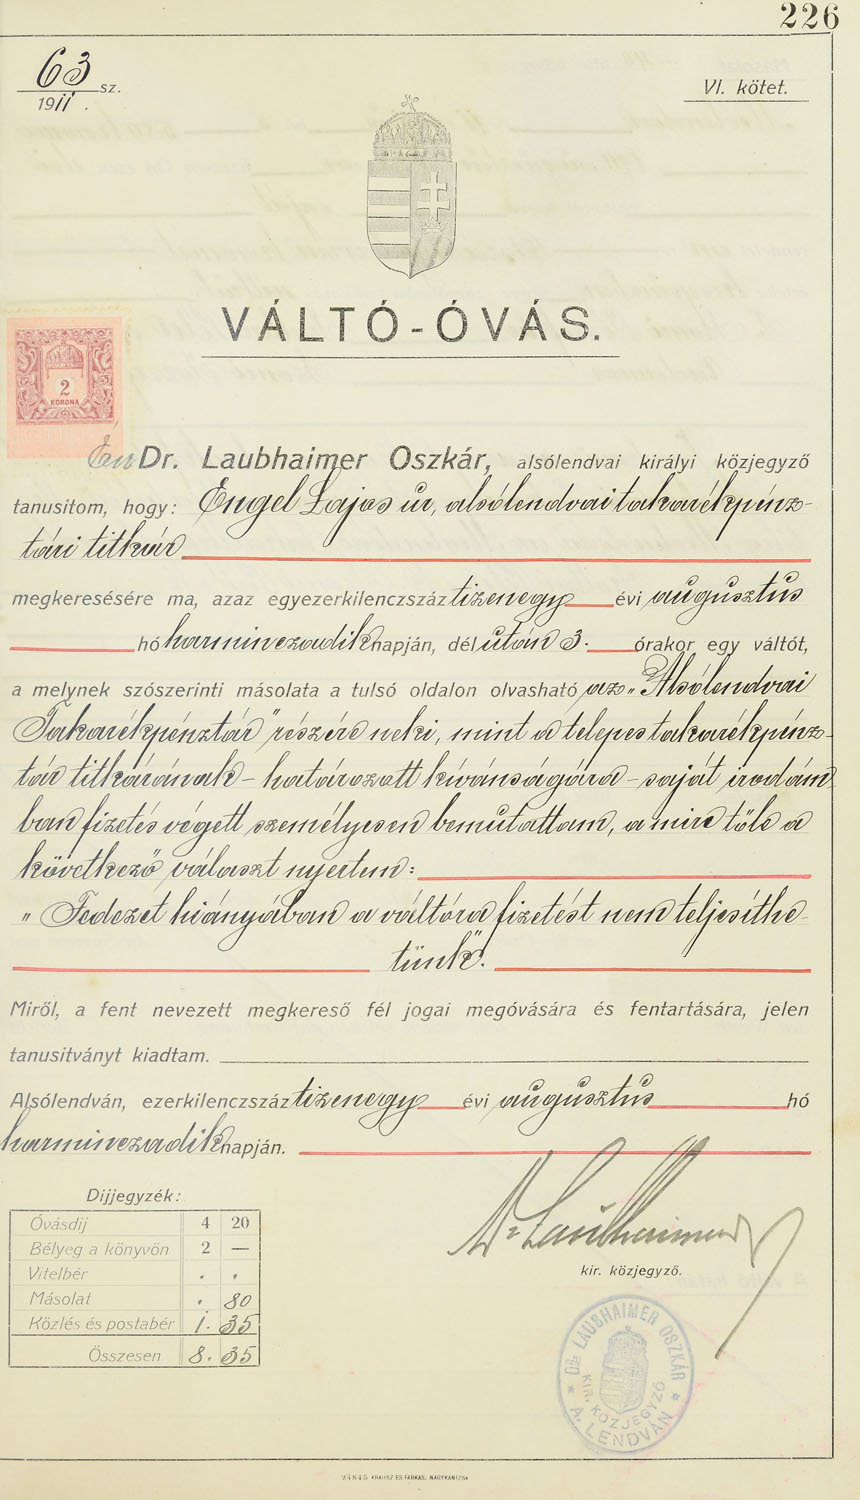 226
63 sz.
1911.
VI. kötet.
VÁLTÓ-ÓVÁS.
2
KORONA
Én Dr. Laubhaimer Oszkár, alsólendvai királyi közjegyző
tanusitom, hogy: Engel Lajos úr, alsólendvai takarékpénz-
tári titkár
megkeresésére ma, azaz egyezerkilenczszáz tizenegy évi augusztus
hó harminczadik napján, dél után 3. órakor egy váltót,
a melynek szószerinti másolata a tulsó oldalon olvasható az „Alsólendvai
Takarékpénztár" részére neki, mint a telepes takarékpénz-
tár titkárának - határozott kívánságára - saját irodám
ban fizetés végett személyesen bemutattam, a mire tőle a
következő választ nyertem:
„Fedezet hiányában a váltóra fizetést nem teljesíthe-
tünk".
Miről, a fent nevezett megkereső fél jogai megóvására és fentartására, jelen
tanusitványt kiadtam.
Alsólendván, ezerkilenczszáz tizenegy évi augusztus hó
harminczadik napján.
Dr Laubhaimer
kir. közjegyző.
Dijjegyzék:
Óvásdij 4 20
Bélyeg a könyvön 2 —
Vitelbér . .
Másolat . 80
Közlés és postabér 1. 35
Összesen 8. 35
DR. LAUBHAIMER OSZKÁR
KIR. KÖZJEGYZŐ
* A. LENDVÁN *
KRAUSZ ÉS FARKAS, NAGYKANIZSA